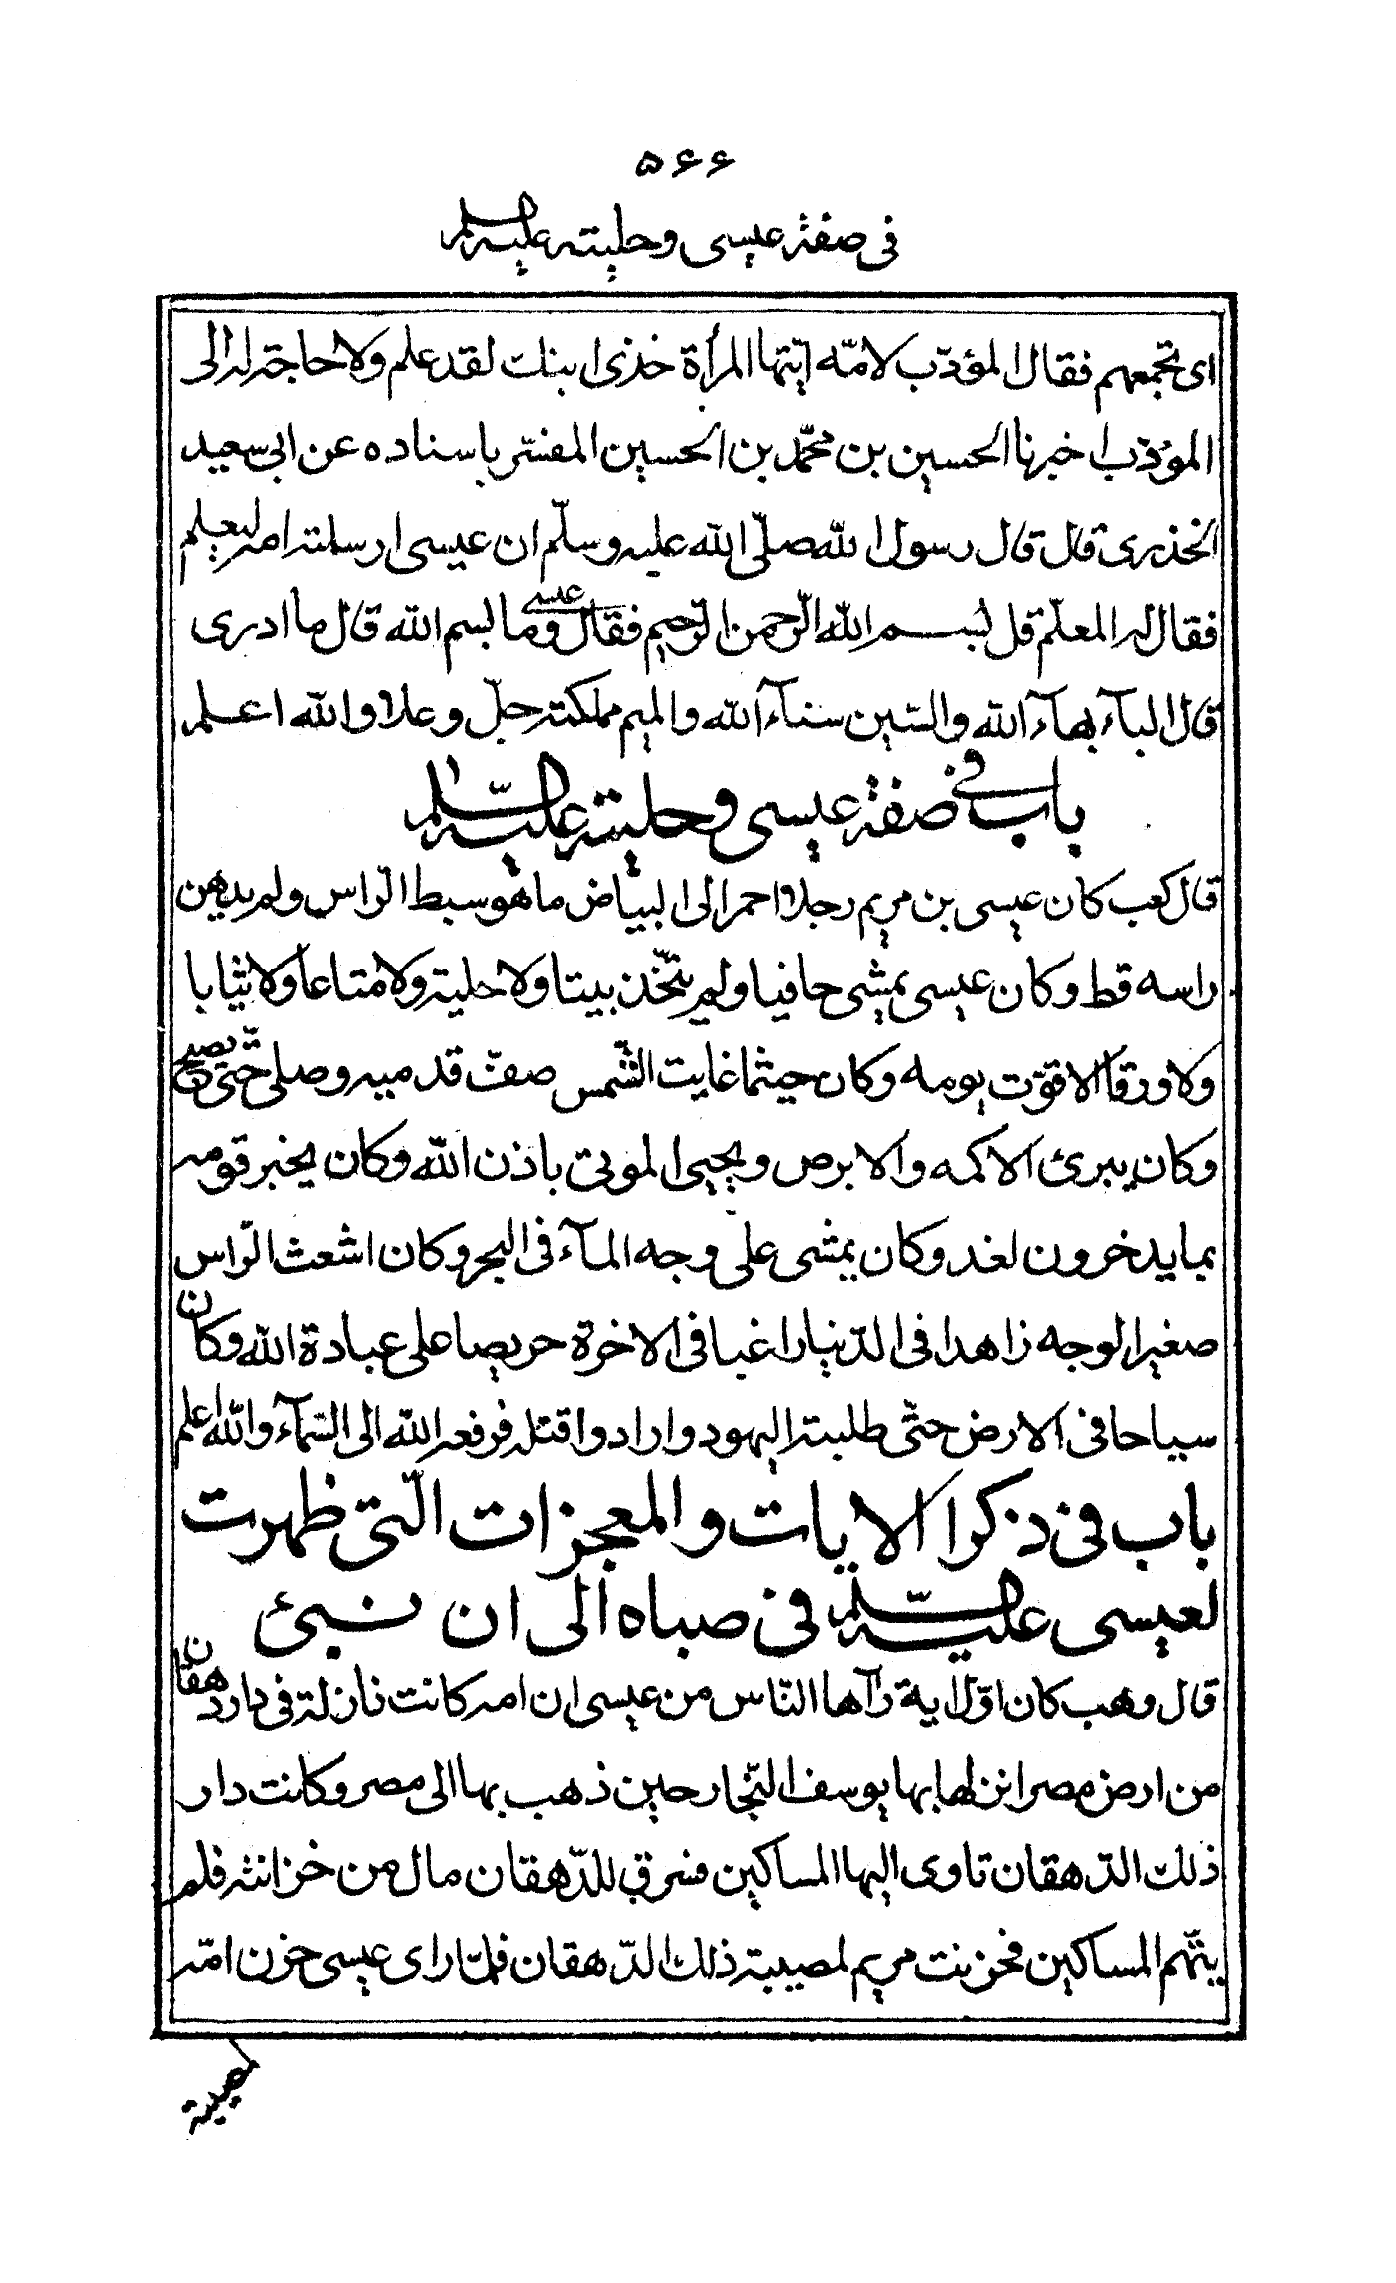 ۵۶۶
فى صفة عيسى وحليته عليه السلم
اى تجمعهم فقال المؤدّب لامّه ايّتها المرأة خذى ابنك لقد علم ولا حاجة له الى
المؤدّب اخبرنا الحسين بن محمّد بن الحسين المفسّر باسناده عن ابى سعيد
الخذرى قال قال رسول الله صلّى الله عليه وسلّم ان عيسى ارسلته امه ليعلم
فقال له المعلّم قل بسم الله الرّحمن الرّحيم فقال عيسى وما بسم الله قال ما ادرى
قال البآء بهآء الله والسّين سنآء الله والميم مملكته جلّ وعلا والله اعلم
باب فى صفة عيسى وحليته عليه السّلم
قال كعب كان عيسى بن مريم رجلا احمر الى البياض ما هو سبط الرّاس ولم يدهن
راسه قط وكان عيسى يمشى حافيا ولم يتّخذ بيتا ولا حلية ولا متاعا ولا ثيابا
ولا ورقا الا قوّت يومه وكان حيثما غابت الشّمس صفّ قدميه وصلى حتّى يصبح
وكان يبرئ الاكمه والابرص ويحيى الموتى باذن الله وكان يخبر قومه
بما يدخرون لغد وكان يمشى على وجه المآء فى البحر وكان اشعث الرّاس
صغير الوجه زاهدا فى الدّنيا راغبا فى الاخرة حريصا على عبادة الله وكان
سياحا فى الارض حتّى طلبته اليهود وارادوا قتله فرفعه الله الى السّمآء والله اعلم
باب فى ذكر الايات والمعجزات الّتى ظهرت
لعيسى عليه السّلم فى صباه الى ان نبئ
قال وهب كان اوّل اية رآها النّاس من عيسى ان امه كانت نازلة فى دار دهقان
من ارض مصر انزلها بها يوسف النّجار حين ذهب بها الى مصر وكانت دار
ذلك الدّهقان تاوى اليها المساكين فسرق للدّهقان مال من خزانته فلم
يتّهم المساكين فحزنت مريم لمصيبة ذلك الدّهقان فلمّا راى عيسى حزن امّه